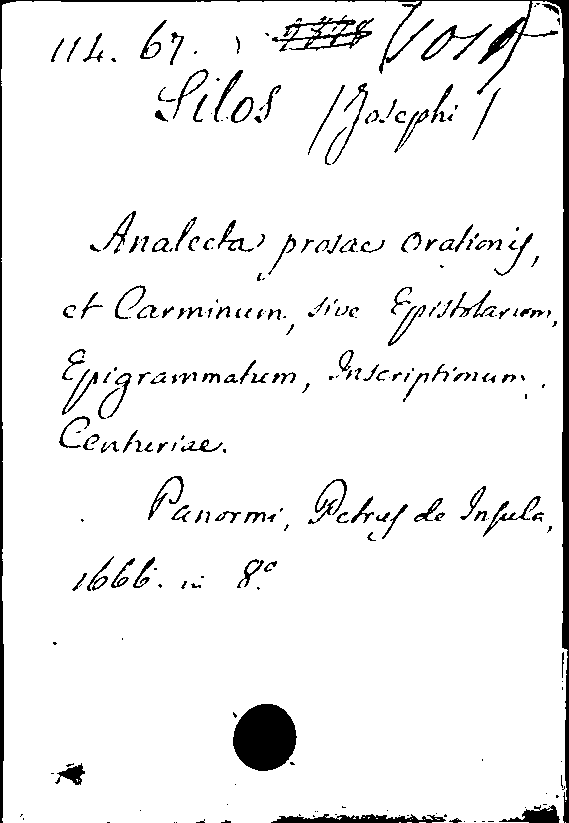 114. 67.
Silos /Josephi/
Analecta prosae orationis,
et Carminum, sive Epistolarum,
Epigrammatum, Inscriptionum.
Centuriae.
Panormi, Petrus de Insula,
1666. in 8.o